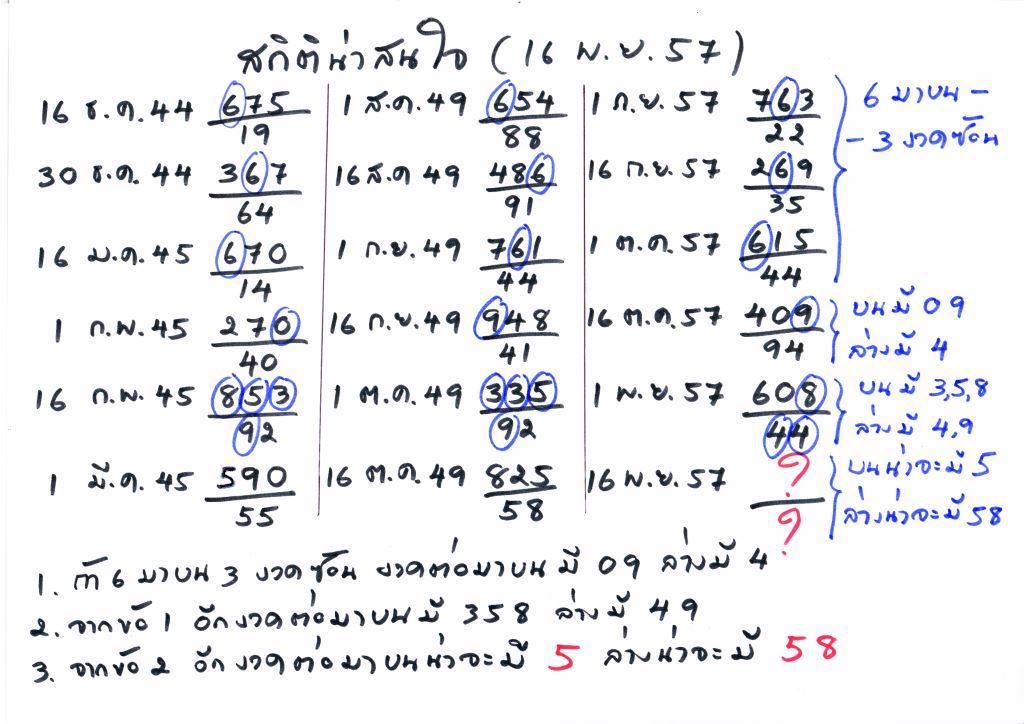 สถิติน่าสนใจ (16 พ.ย. 57)
16 ธ.ค. 44 675 1 ส.ค. 49 654 1 ก.ย. 57 763 6 มาบน -
19 88 22 - 3 งวดซ้อน
30 ธ.ค. 44 367 16 ส.ค 49 486 16 ก.ย. 57 269
64 91 35
16 ม.ค. 45 670 1 ก.ย. 49 761 1 ต.ค. 57 615
14 44 44
1 ก.พ. 45 270 16 ก.ย. 49 948 16 ต.ค. 57 409 บนมี 09
40 41 94 ล่างมี 4
16 ก.พ. 45 853 1 ต.ค. 49 335 1 พ.ย. 57 608 บนมี 3,5,8
92 92 44 ล่างมี 4,9
1 มี.ค. 45 590 16 ต.ค. 49 825 16 พ.ย. 57 ? บนน่าจะมี 5
55 58 ? ล่างน่าจะมี 58
1. ถ้า 6 มาบน 3 งวดซ้อน งวดต่อมาบน มี 09 ล่างมี 4
2. จากข้อ 1 อีกงวดต่อมาบนมี 358 ล่างมี 49
3. จากข้อ 2 อีกงวดต่อมาบนน่าจะมี 5 ล่างน่าจะมี 58